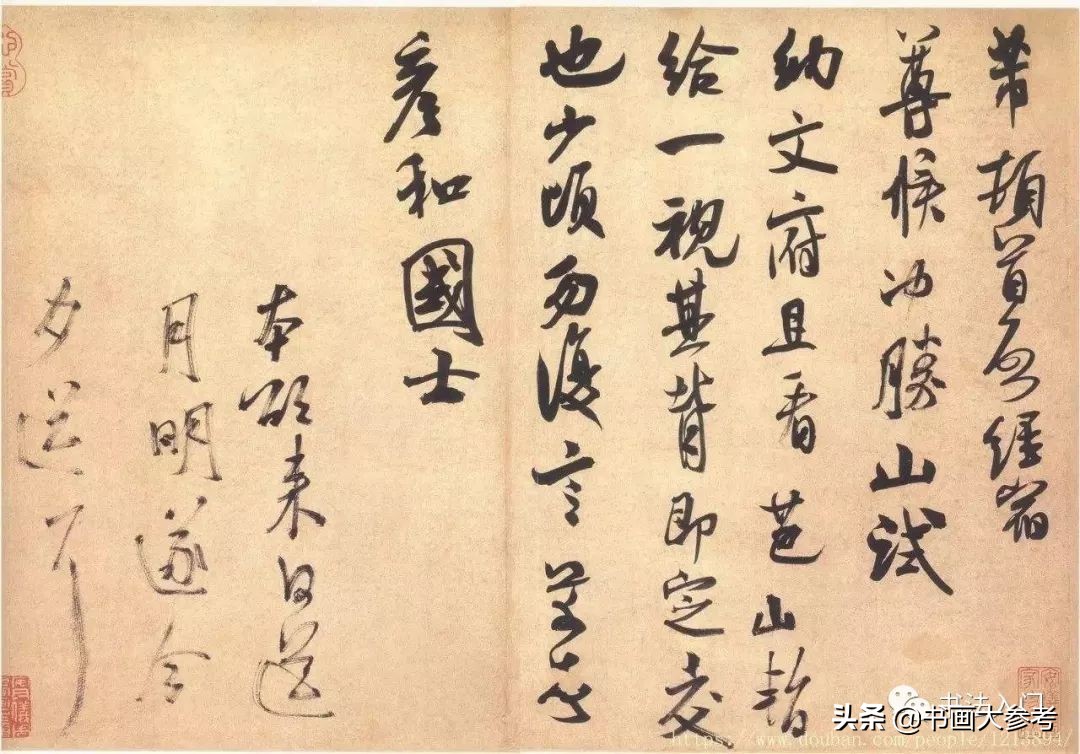 芾頓首啓經宿
尊候冲勝山試
納文府且看芭山暫
給一視其背即定交
也少頃勿復言芾頓首
彥和國士
本欲來日送
月明遂今
夕送耳
书法入门
头条 @书画大参考
https://www.douban.com/people/1213894/